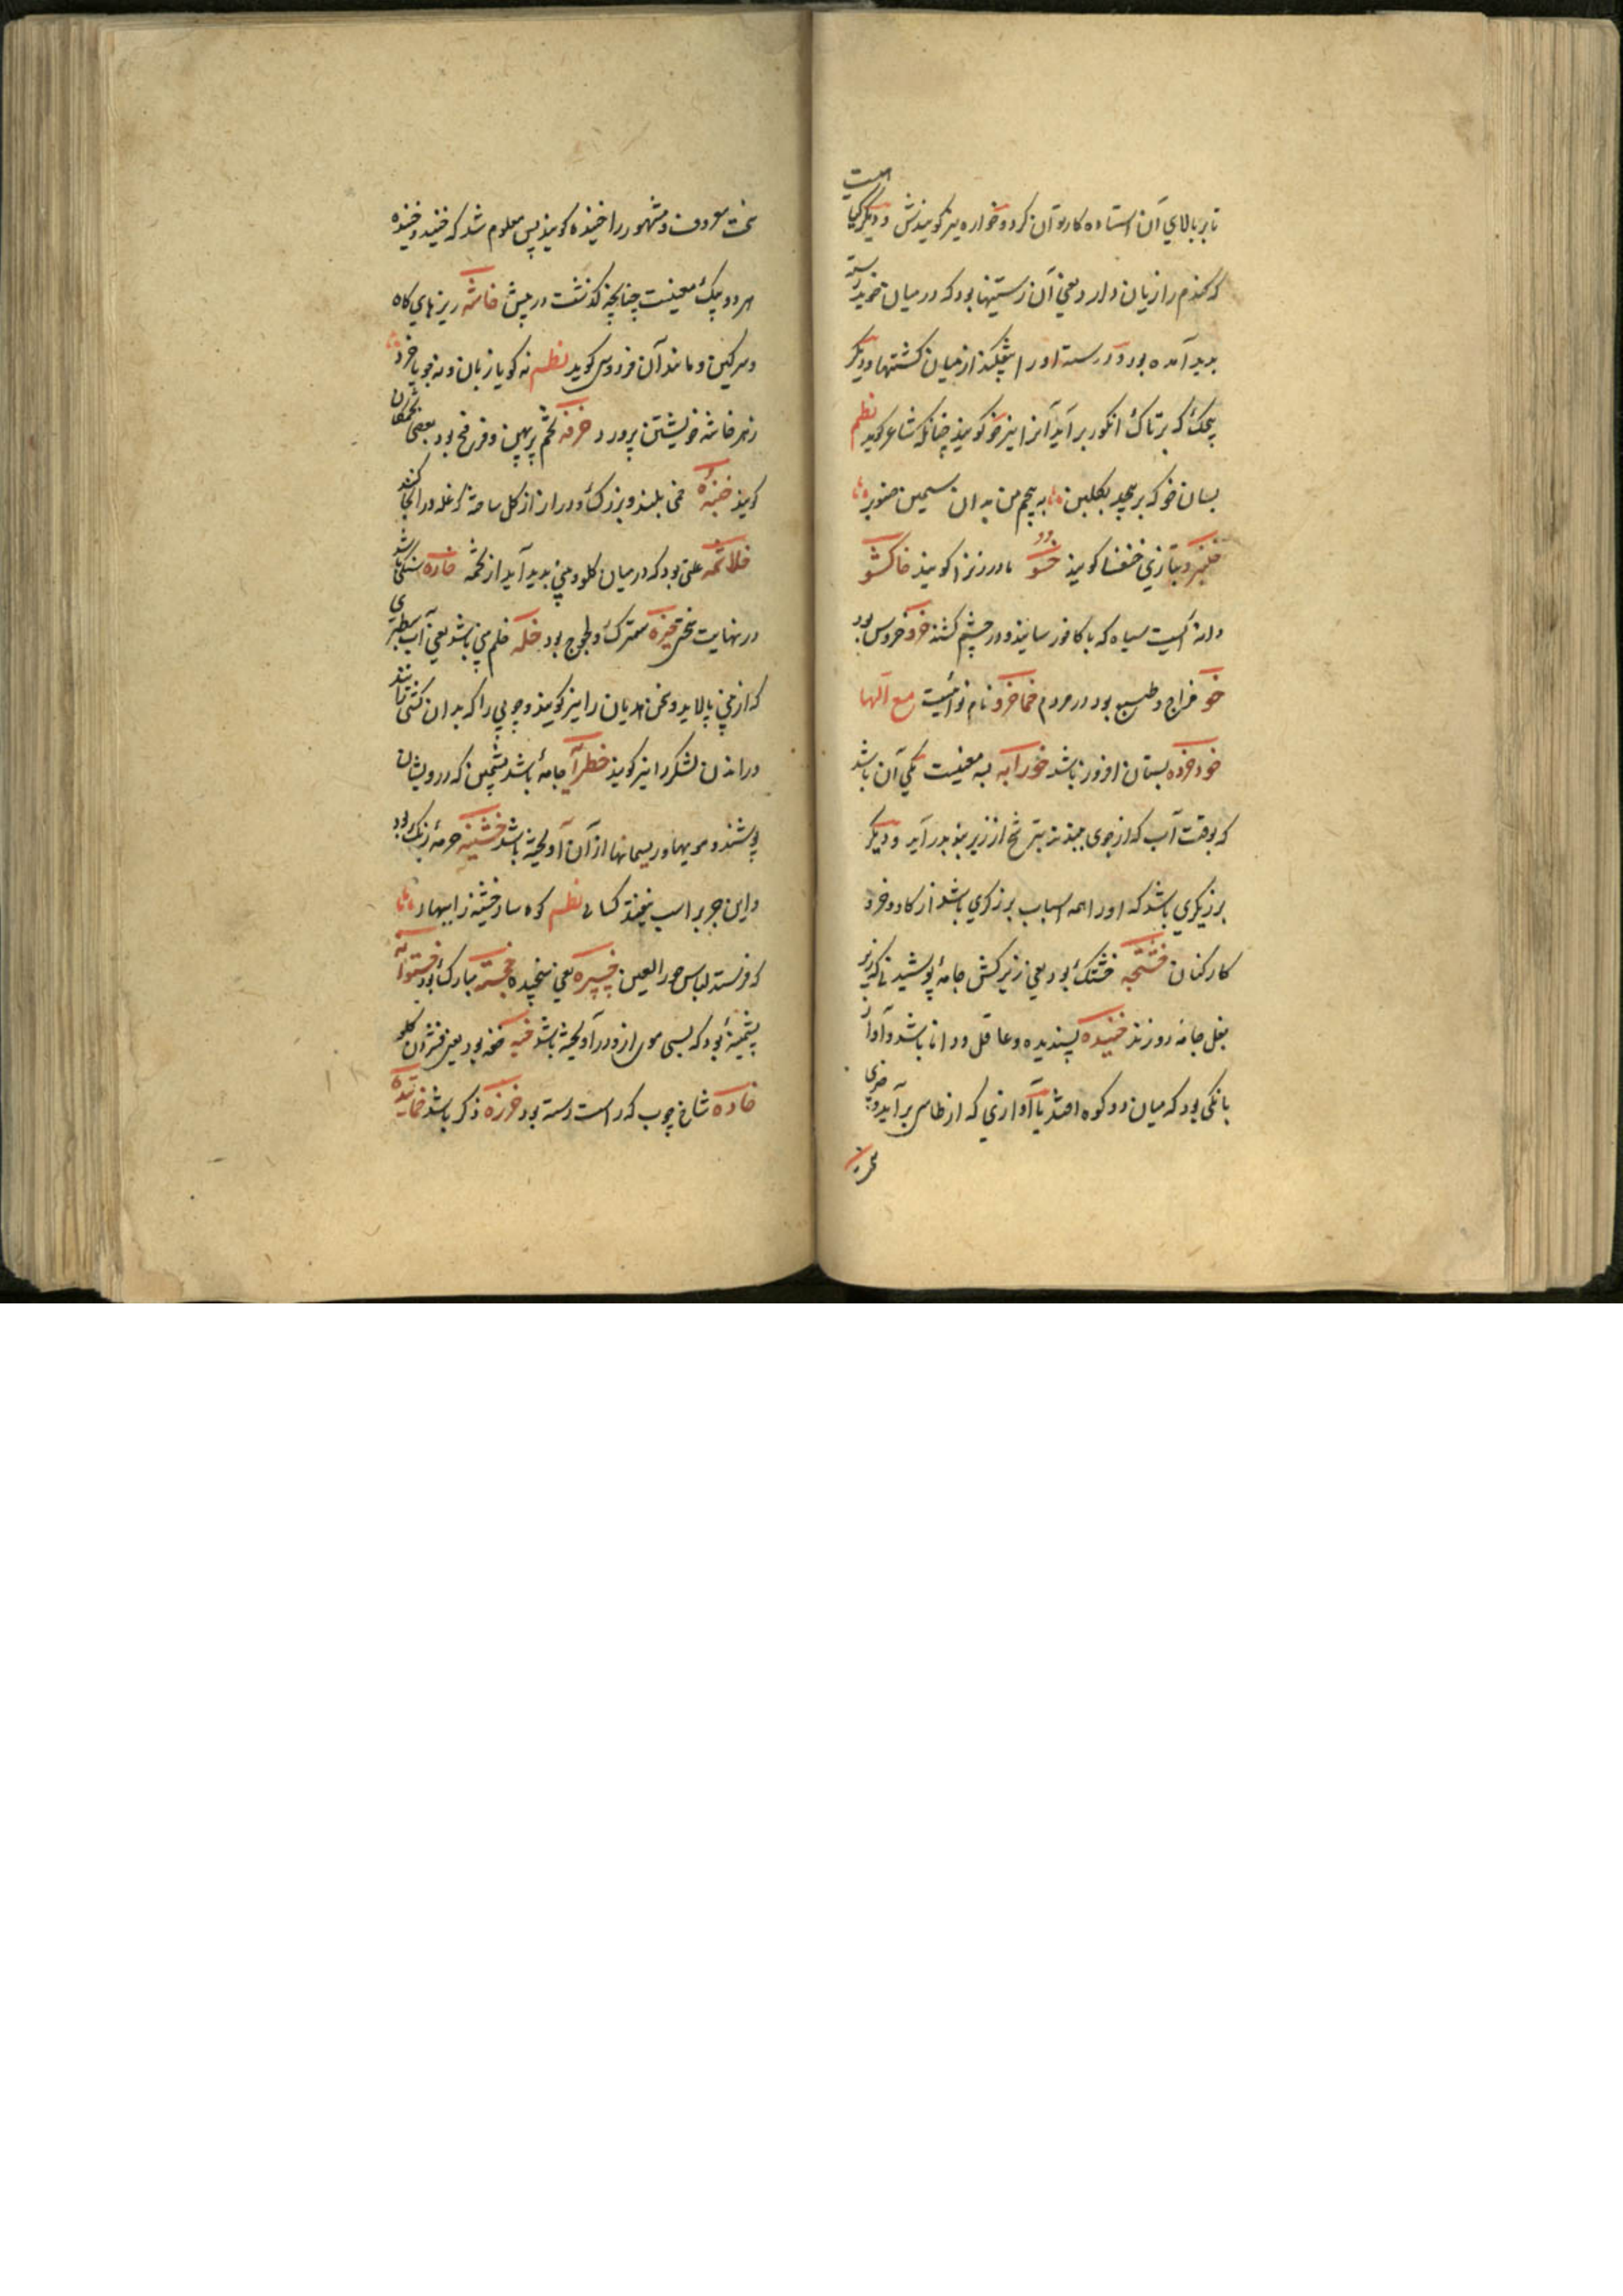 تا بر بالای آن استاده کار توان کرد و خواره نیز گویندش و دیگر گیاهی است
که گندم را زیان دارد یعنی آن رستنیها بود که در میان خوید رسته
پدید آمده بود و درسته او را بیفکنند از میان کشتها و دیگر
پیچک که بر تاک انگور بر آید آنرا نیز خو گویند چنانکه شاعر گوید نظم
بسان خو که بر پیچد بگلبن بپیچم من بدان سیمین صنوبر
خنفسا گویند خسو مادر زنرا گویند خاکشو
دانه ایست سیاه که با کافور سایند و در چشم کشند خرو خروس بود
خو مزاج و طبع بود در مردم خماخرو نام نوائیست مع الها
خود خروه بستان افروز باشد خورابه به معنیست یکی آن باشد
که بوقت آب که از جوی ببندند بترشح از زیر بند بدر آید و دیگر
برزیگری باشد که او را همه اسباب برزگری باشد از گاو و خر و
کارکنان خشتجه خشتک بود یعنی زیر کش جامه پوشیدنا که زیر
بغل جامه دوزند خنیده پسندیده و عاقل و دانا باشد و آواز
بانگی بود که میان دو کوه افتد یا آوازی که از طاس بر آید و چیزی
معروف و مشهور را خنیده گویند پس معلوم شد که خنید و خنیده
هر دو بیک معنیست چنانچه گذشت در پیش خاشه ریزهای کاه
و سرگین و مانند آن فردوسی گوید نظم نه گویا زبان و نه جویا خرد
ز هر خاشه خویشتن پرورد خرفه تخم پرپهن و فرفخ بود بعضی تخمکان
گویند خنبه خمی بلند و بزرگ و دراز از گل ساخته که غله در آنجا کنند
خلاشمه علتی بود که در میان گلو و بینی پدید آید از تخمه خاره سنگی باشد
در نهایت سختی خیره سترگ و لجوج بود خله خلم بینی باشد یعنی آب سطبری
که از بینی پالاید و سخن هذیان را نیز گویند و چوبی را که بدان کشتی رانند
و راندن لشکر را نیز گویند جامه باشد پشمین که درویشان
پوشند و مویها و ریسمانها از آن آویخته باشد خشینه خرمه رنگ بود
و این جز بر اسب نیفتد کسائی نظم کوه سار خشینه را ببهار
که فرستد لباس حور العین خپیره یعنی سنجیده خجسته مبارک بود خستوانه
پشمینه بود که بسی موی ازو در آویخته باشد خبه خفه بود یعنی فشردن گلو
خاده شاخ چوب که راست رسته بود خرزه ذکر باشد خمانیده